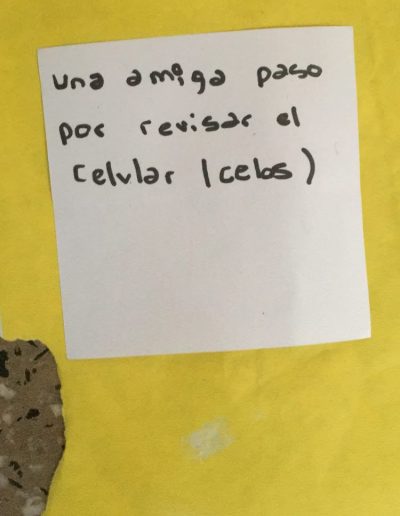 una amiga paso
por revisar el
celular (celos)